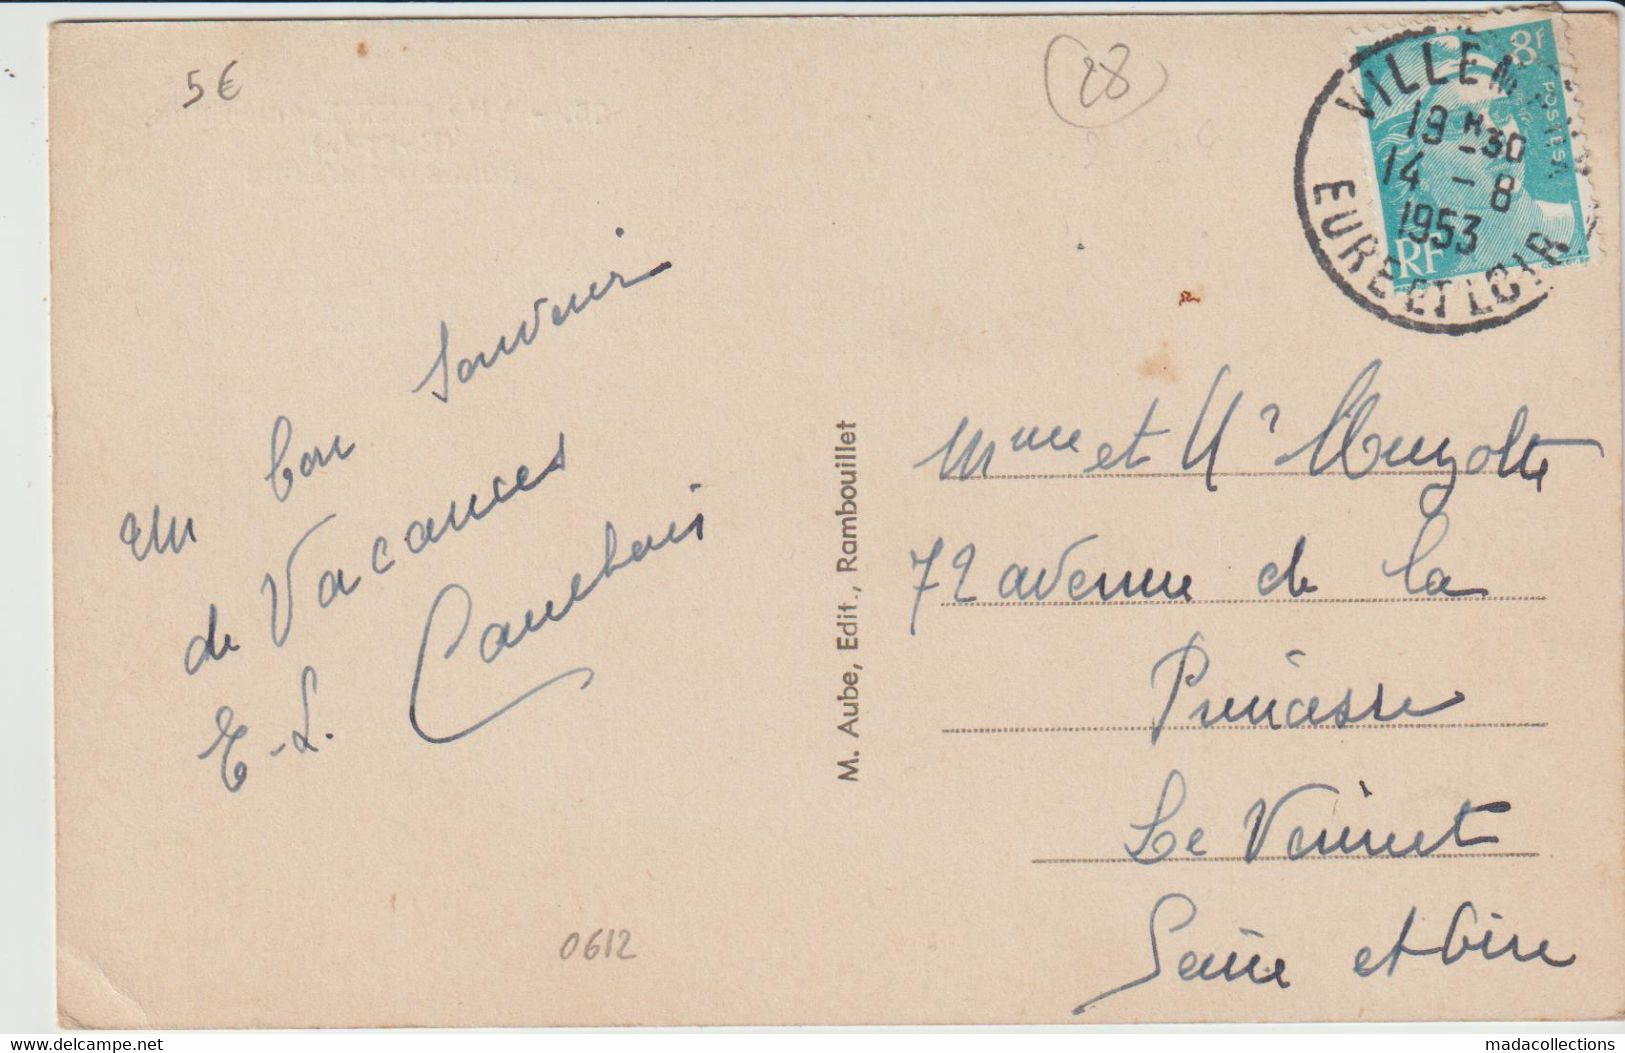 5€
28
8F
POSTES
RF
VILLEM
19H30
14-8
1953
EURE ET LOIR
un bon souvenir
de Vacances
E-L. Cauchois
M. Aube, Edit., Rambouillet
Mme et Mr
72 avenue de la
Princesse
Le Vésinet
Seine et Oise
0612
delcampe.net
madacollections